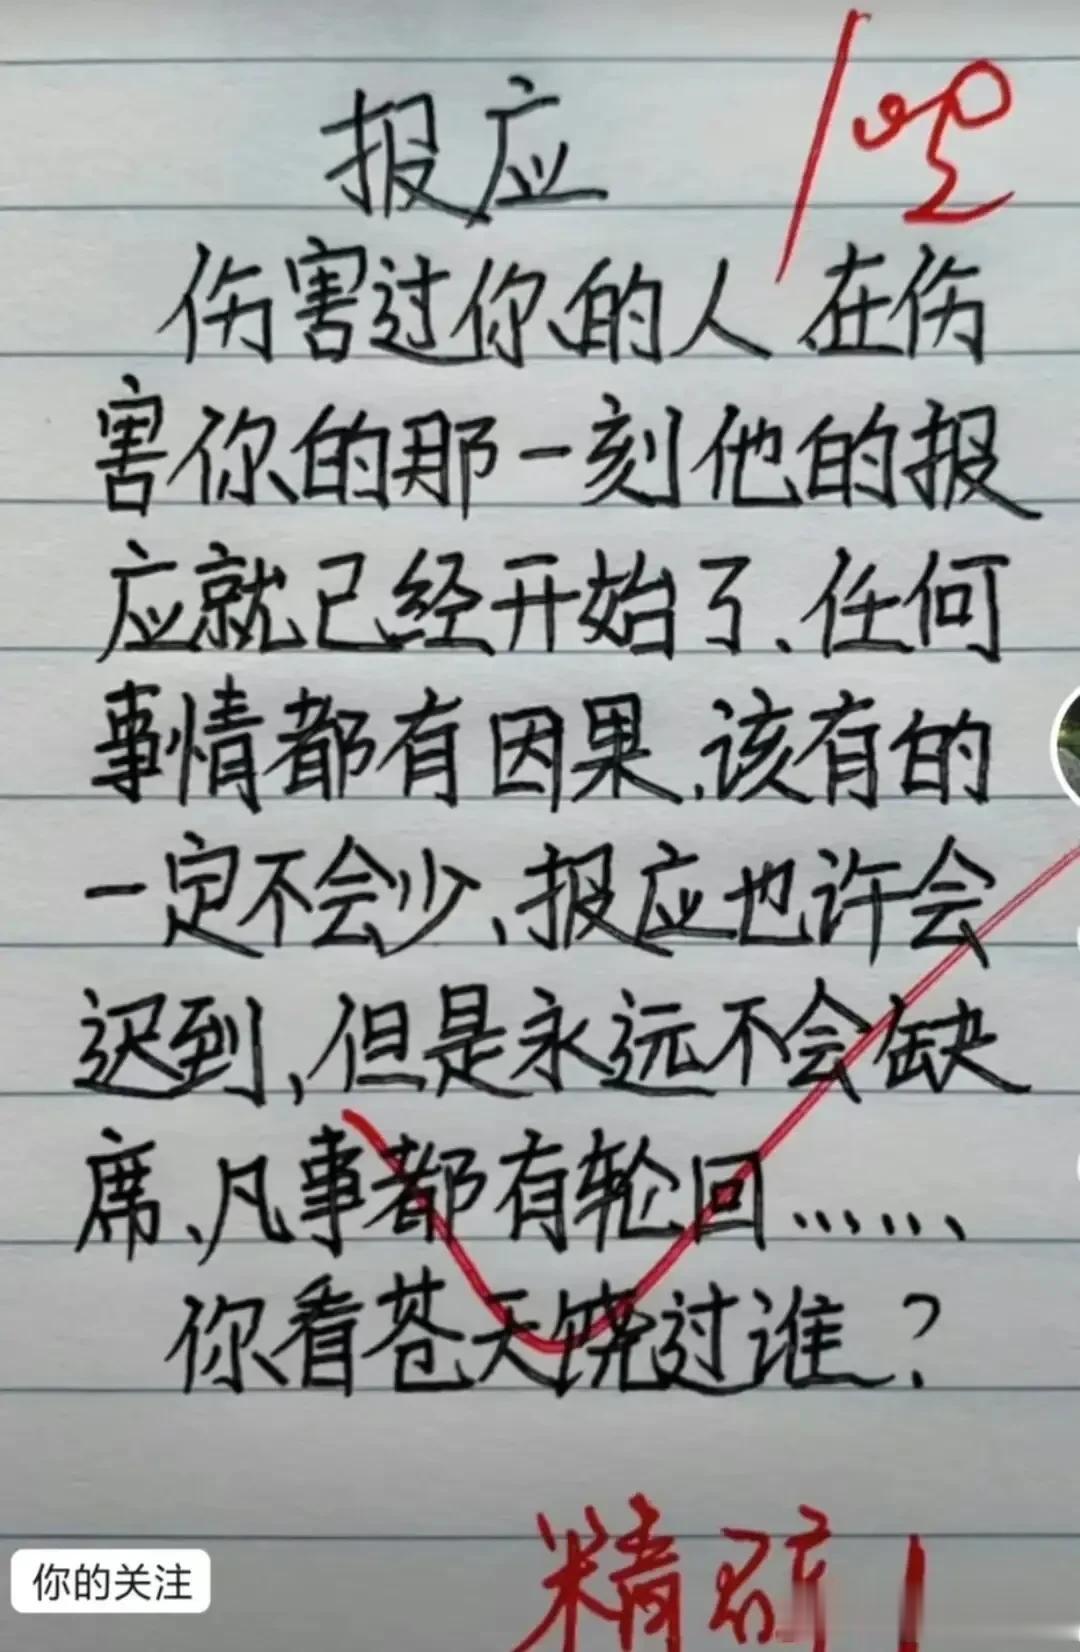 报应
100
伤害过你的人.在伤
害你的那一刻他的报
应就已经开始了、任何
事情都有因果.该有的
一定不会少、报应也许会
迟到,但是永远不会缺
席、凡事都有轮回……
你看苍天饶过谁?
精辟!
你的关注